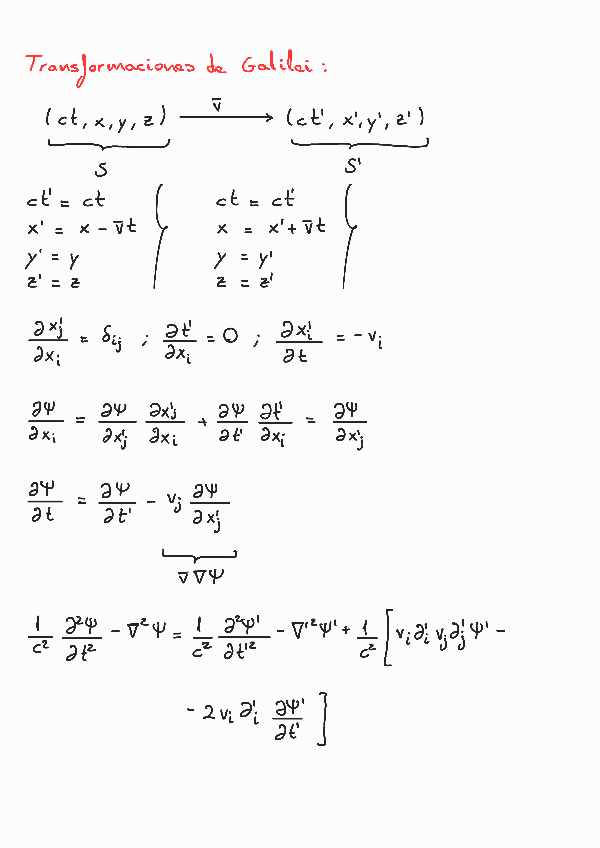 Transformaciones de Galilei :
(ct, x, y, z) v̄ → (ct', x', y', z')
S S'
ct' = ct ct = ct'
x' = x - v̄t x = x' + v̄t
y' = y y = y'
z' = z z = z'
∂x'j/∂xi = δij ; ∂t'/∂xi = 0 ; ∂x'i/∂t = -vi
∂Ψ/∂xi = ∂Ψ/∂x'j ∂x'j/∂xi + ∂Ψ/∂t' ∂t'/∂xi = ∂Ψ/∂x'j
∂Ψ/∂t = ∂Ψ/∂t' - vj ∂Ψ/∂x'j
v̄ ∇Ψ
1/c² ∂²Ψ/∂t² - ∇²Ψ = 1/c² ∂²Ψ'/∂t'² - ∇'²Ψ' + 1/c² [ vi ∂'i vj ∂'j Ψ' -
- 2 vi ∂'i ∂Ψ'/∂t' ]